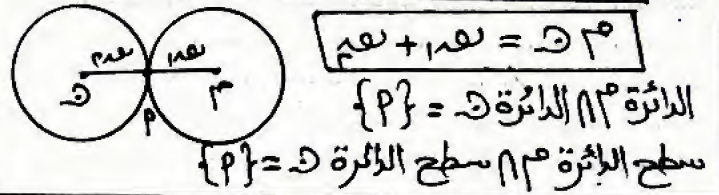 م ن = نق١ + نق٢
نق٢ نق١
ن م
أ
الدائرة م ∩ الدائرة ن = {أ}
سطح الدائرة م ∩ سطح الدائرة ن = {أ}